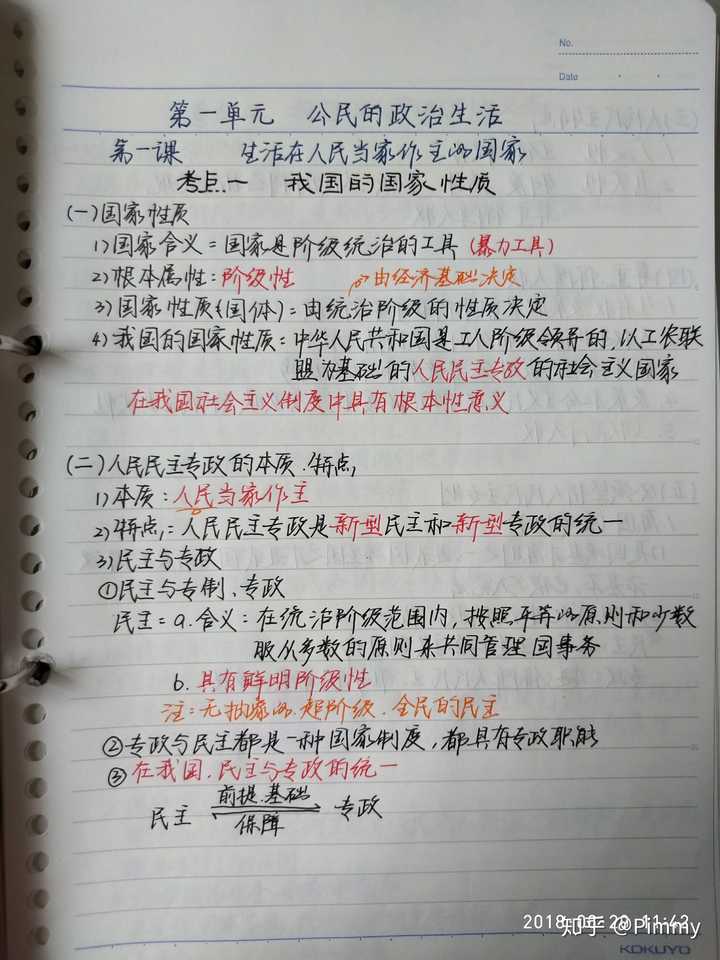 No.
Date
第一单元 公民的政治生活
第一课 生活在人民当家作主的国家
考点一 我国的国家性质
(一)国家性质
1)国家含义=国家是阶级统治的工具(暴力工具)
2)根本属性:阶级性 由经济基础决定
3)国家性质(国体)=由统治阶级的性质决定
4)我国的国家性质:中华人民共和国是工人阶级领导的,以工农联
盟为基础的人民民主专政的社会主义国家
在我国社会主义制度中具有根本性意义
(二)人民民主专政的本质.特点
1)本质:人民当家作主
2)特点:人民民主专政是新型民主和新型专政的统一
3)民主与专政
①民主与专制、专政
民主=a.含义:在统治阶级范围内,按照平等的原则和少数
服从多数的原则来共同管理国事务
b.具有鲜明阶级性
注:无抽象的.超阶级.全民的民主
②专政与民主都是一种国家制度,都具有专政职能
③在我国.民主与专政的统一
民主 前提.基础 专政
保障
2018-08-20 11:43
知乎 @Pimmy
KOKUYO